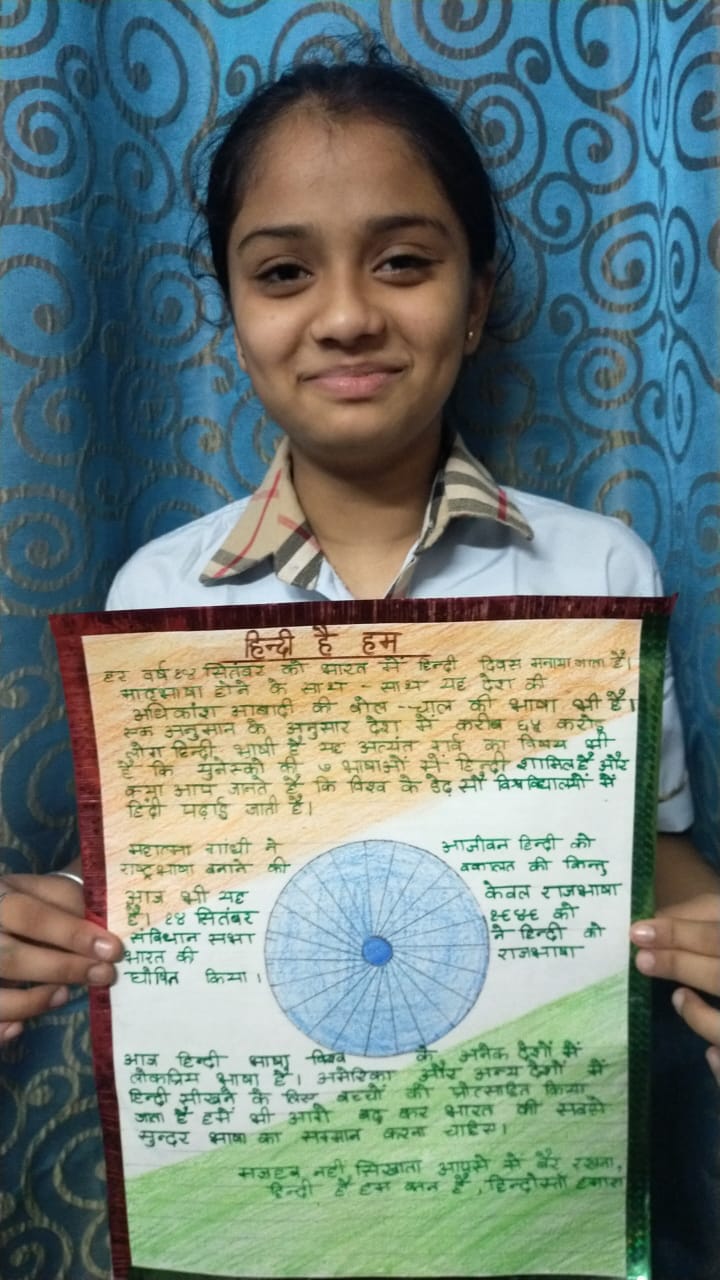 हिन्दी है हम
हर वर्ष १४ सितंबर को भारत में हिन्दी दिवस मनाया जाता है।
मातृभाषा होने के साथ - साथ यह देश की
अधिकांश आबादी की बोल - चाल की भाषा भी है।
एक अनुमान के अनुसार देश में करीब ६५ करोड़
लोग हिन्दी भाषी है यह अत्यंत गर्व का विषय भी
है कि युनेस्को की ७ भाषाओं में हिन्दी शामिल है और
क्या आप जानते है कि विश्व के डेढ़ सौ विश्वविद्यालयों में
हिंदी पढ़ाई जाती है।
महात्मा गांधी ने आजीवन हिन्दी को
राष्ट्रभाषा बनाने की वकालत की किन्तु
आज भी यह केवल राजभाषा
है। १४ सितंबर १९४९ को
संविधान सभा ने हिन्दी को
भारत की राजभाषा
घोषित किया।
आज हिन्दी भाषा विश्व के अनेक देशों में
लोकप्रिय भाषा है। अमेरिका और अन्य देशों में
हिन्दी सीखने के लिए बच्चों को प्रोत्साहित किया
जाता है हमें भी आगे बढ़ कर भारत की सबसे
सुन्दर भाषा का सम्मान करना चाहिए।
मजहब नहीं सिखाता आपस में बैर रखना,
हिन्दी है हम वतन है, हिन्दोस्तां हमारा